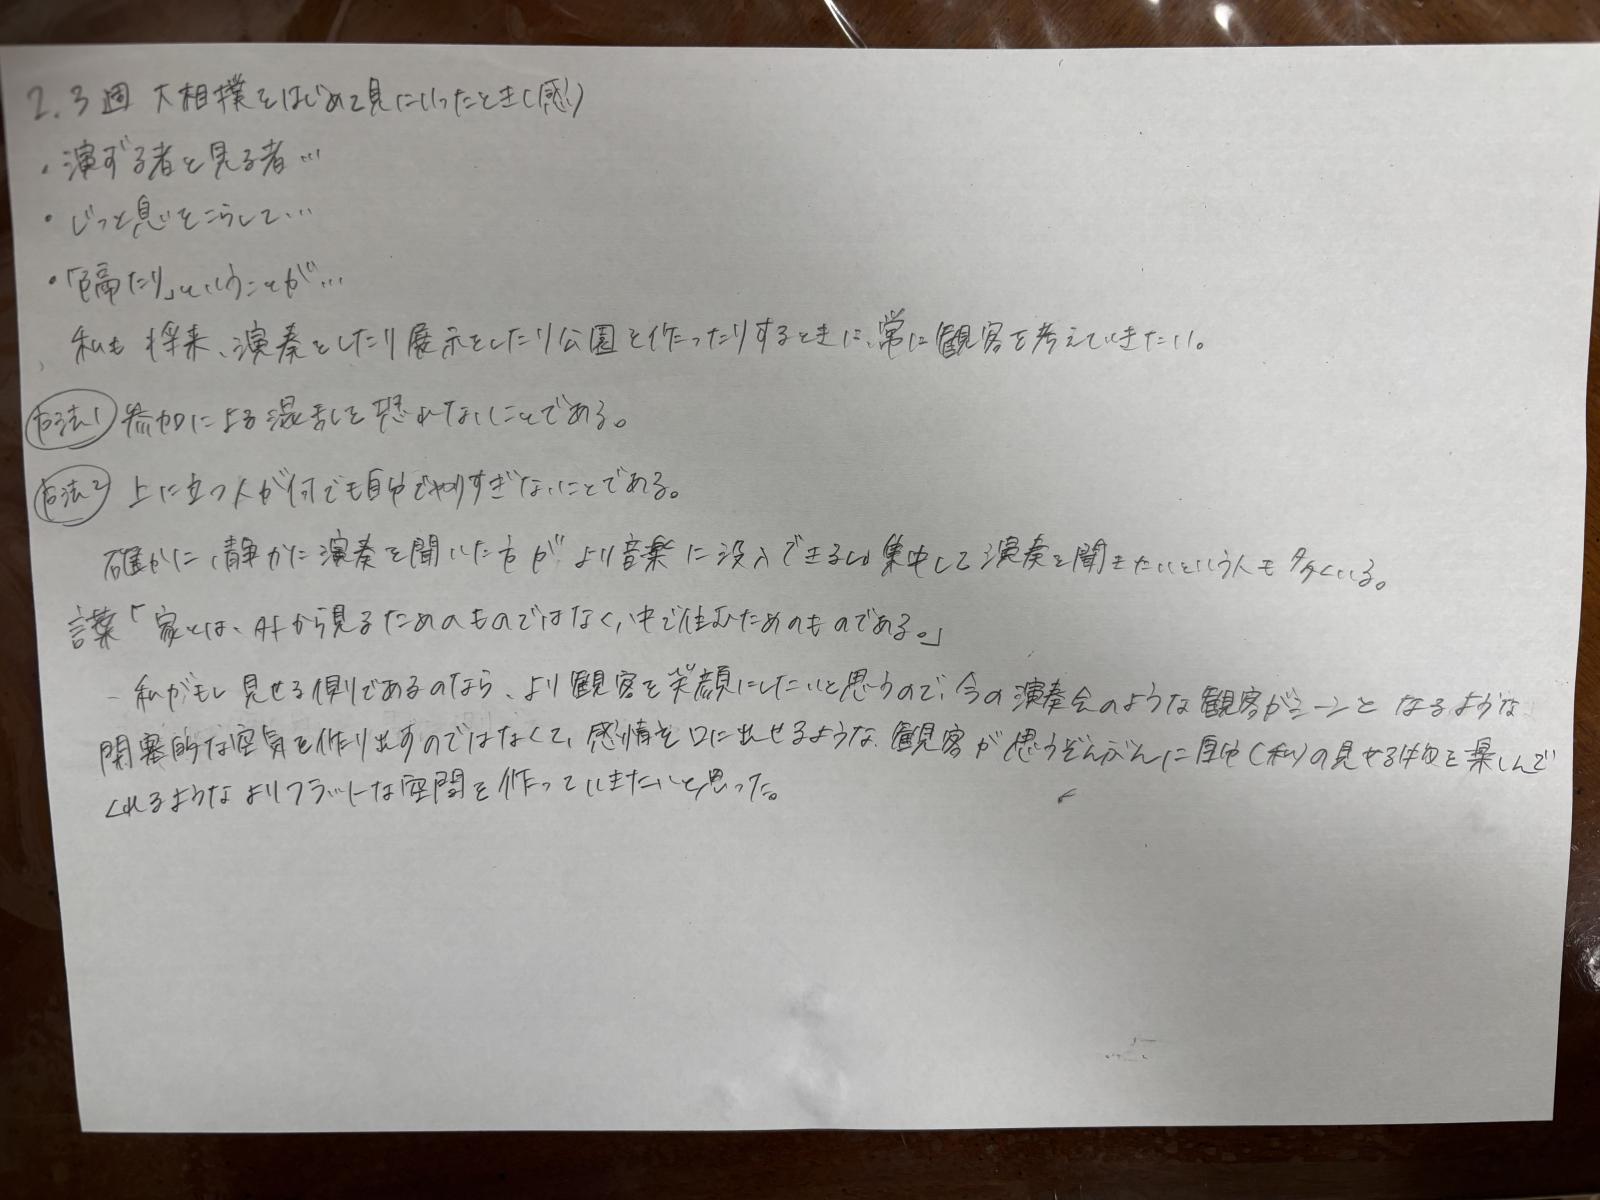 2.3週 大相撲をはじめて見にいったとき(感)
・演ずる者と見る者…
・じっと息をこらして…
・「隔たり」ということが…
私も将来、演奏をしたり展示をしたり公園を作ったりするときに、常に観客を考えていきたい。
方法1 参加による混乱を恐れないことである。
方法2 上に立つ人が何でも自分でやりすぎないことである。
確かに、静かに演奏を聞いた方がより音楽に没入できるし集中して演奏を聞きたいという人も多くいる。
言葉「家とは、外から見るためのものではなく、中で住むためのものである。」
私がもし見せる側であるのなら、より観客を笑顔にしたいと思うので、今の演奏会のような観客がシーンとなるような
閉塞的な空気を作り出すのではなくて、感情を口に出せるような、観客が思うぞんぶんに自由(私)の見せる物を楽しんで
くれるようなよりフラットな空間を作っていきたいと思った。